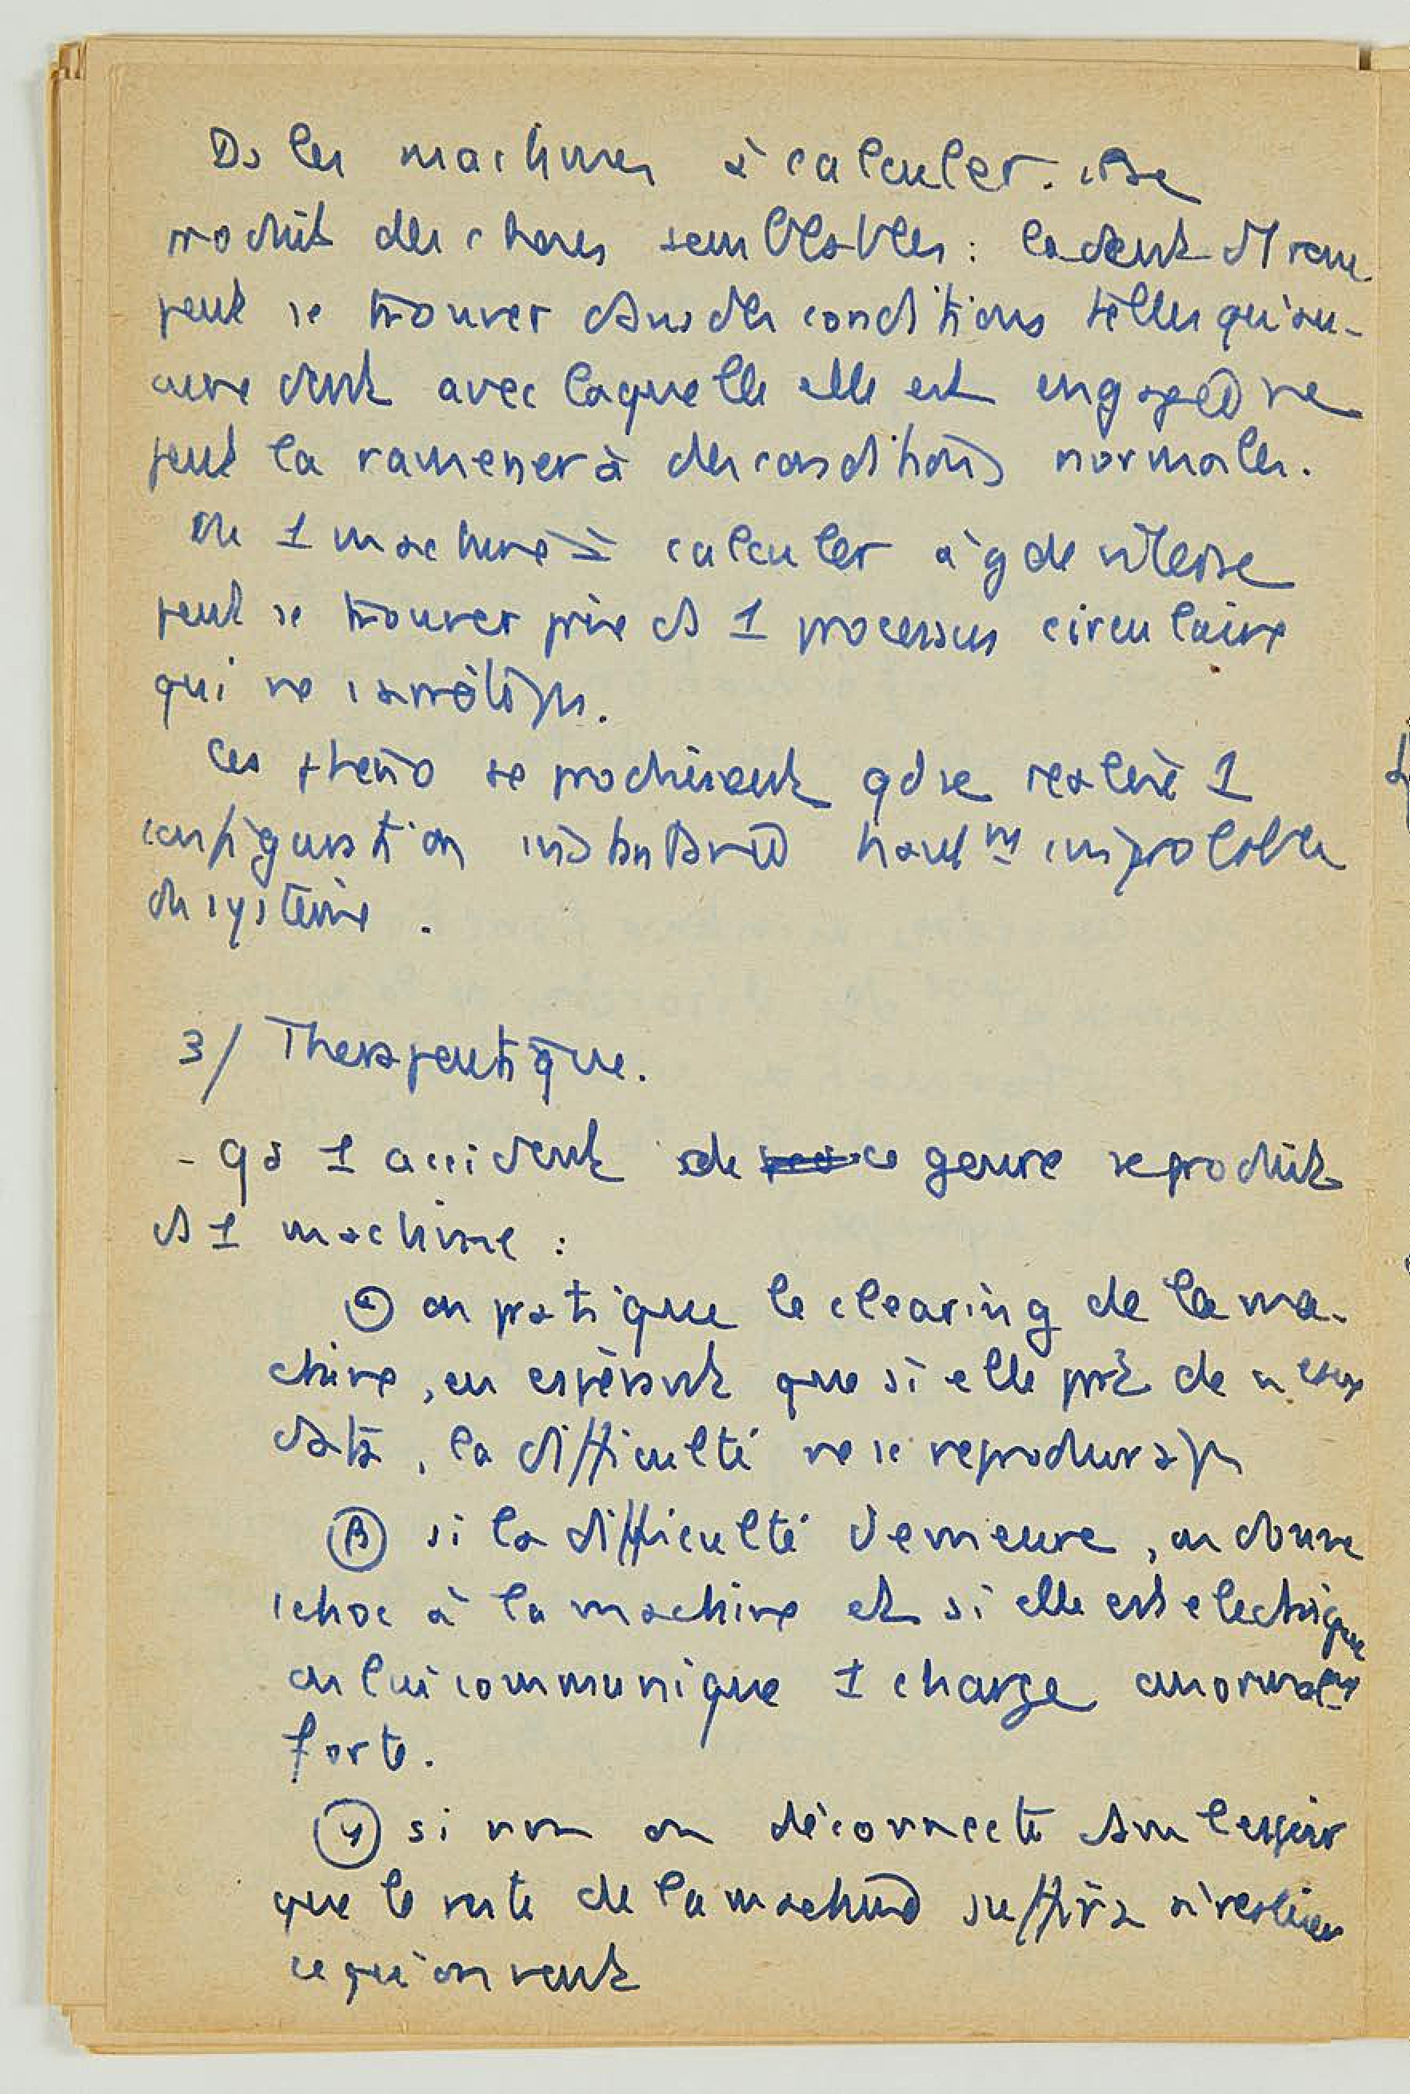 Ds les machines à calculer. il se
produit des choses semblables : la dent d'1 roue
peut se trouver dans des conditions telles qu'au-
cune dent avec laquelle elle est engagée ne
peut la ramener à des conditions normales.
Ou 1 machine à calculer à gde vitesse
peut se trouver prise ds 1 processus circulaire
qui ne s'arrête ps.
Ces phéno se produisent qd se réalise 1
configuration instantanée haut^mt improbable
du système.
3/ Thérapeutique.
- Qd 1 accident de ce genre se produit
ds 1 machine :
α on pratique le clearing de la ma-
chine, en espérant que si elle prt de
data, la difficulté ne se reproduira ps
β si la difficulté demeure, on donne
1 choc à la machine et si elle est électrique
on lui communique 1 charge anormal^mt
forte.
γ si non on déconnecte ds l'espoir
que le reste de la machine suffira à réaliser
ce qu'on veut